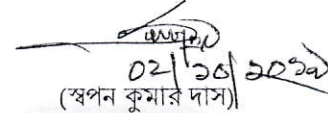 ০২|১০|২০১৯
(স্বপন কুমার দাস)